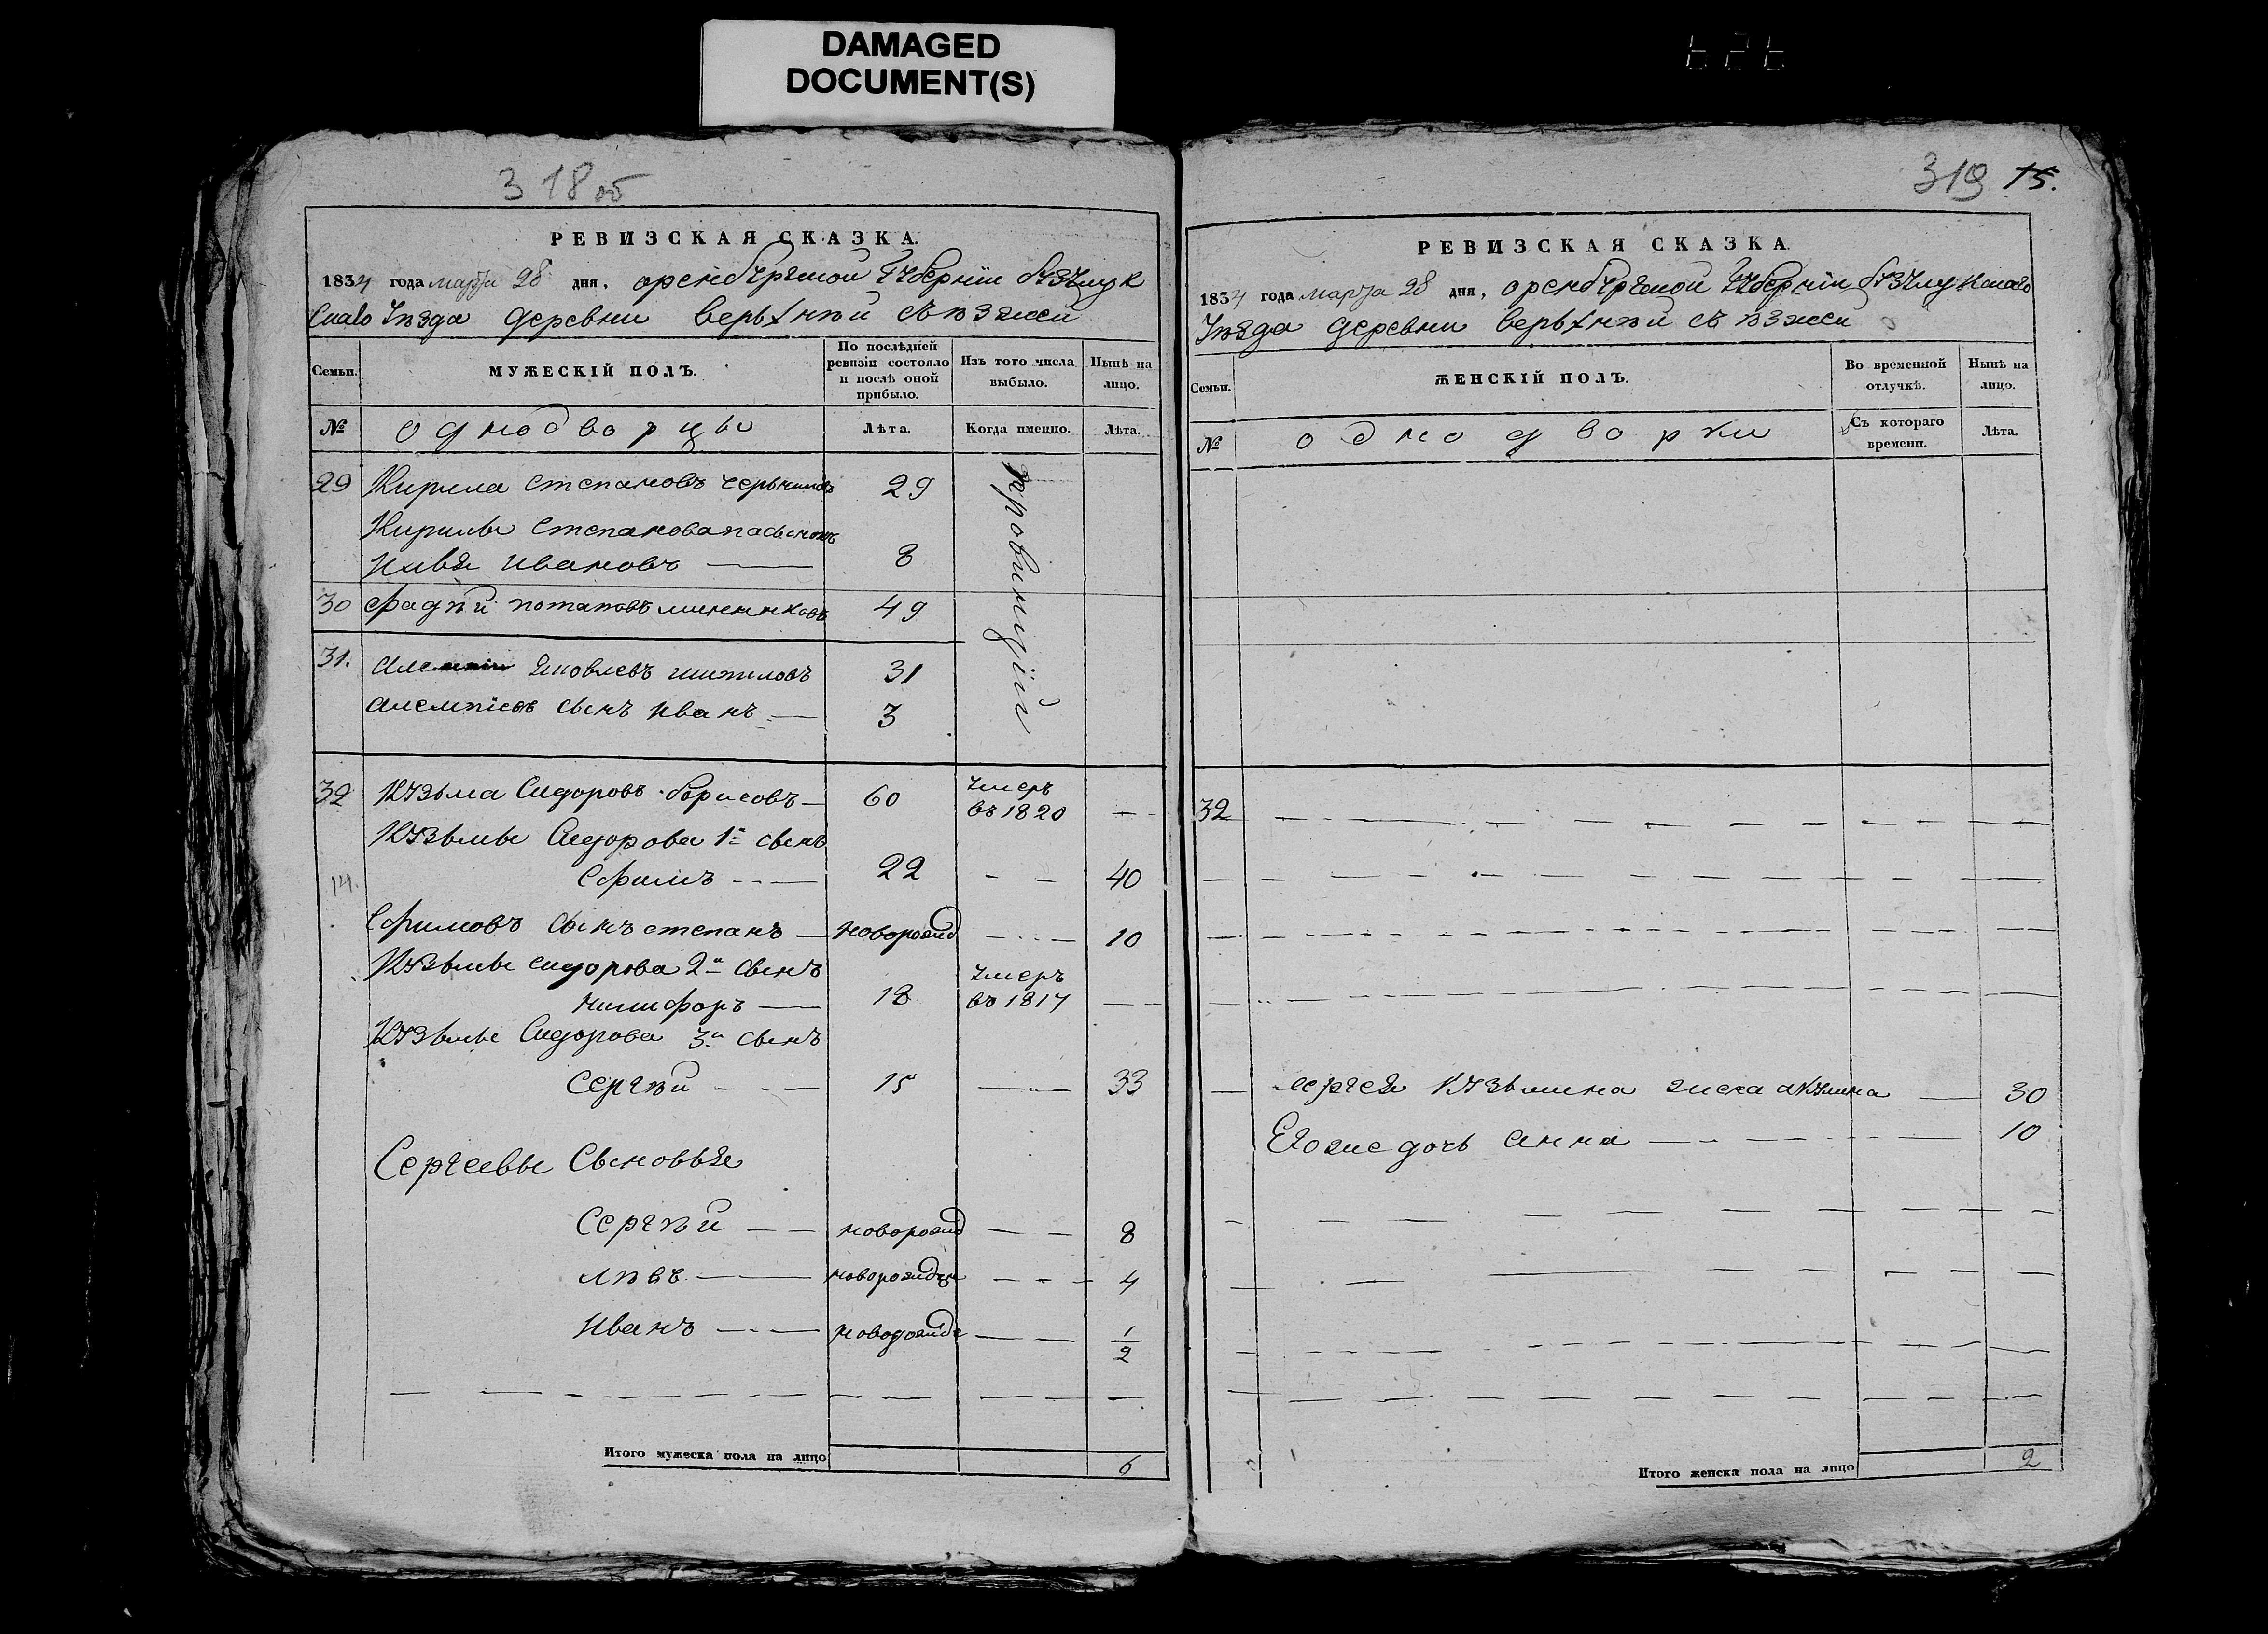 DAMAGED
DOCUMENT(S)
318 об
РЕВИЗСКАЯ СКАЗКА.
1834 года марта 28 дня, оренбургской Губернии бузулук
скаго уѣзда деревни верьхнѣй съѣзжей
Семьи.
МУЖЕСКІЙ ПОЛЪ.
По послѣдней ревизіи состояло и послѣ оной прибыло.
Изъ того числа выбыло.
Нынѣ на лицо.
№ однодворцы Лѣта. Когда имецно. Лѣта.
29 Кирила степановъ 29
Кирилы степанова пасынокъ
иванова 8
30 фадѣй потаповъ 49
31. Яковлевъ 31
сынъ иванъ — 3
32 Кузьма Сидоровъ борисовъ — 60 умеръ въ 1820 —
Кузьмы Сидорова 1й сынъ
Ефимъ — 22 — — 40
14.
Ефимовъ сынъ степанъ — оворожд — 10
Кузьмы сидорова 2й сынъ
никифоръ — 18 умеръ въ 1817 —
Кузьмы Сидорова 3й сынъ
Сергѣй — 15 — 33
Сергеевы Сыновья
Сергѣй — новорожд — 8
лѣвъ — новорожд — 4
Иванъ — новорожде — 1/2
Итого мужеска пола на лицо 6
319 15.
РЕВИЗСКАЯ СКАЗКА
1834 года марта 28 дня, оренбургской Губернии бузулукскаго
уѣзда деревни верьхнѣй съѣзжей
Семьи.
ЖЕНСКІЙ ПОЛЪ.
Во временной отлучкѣ.
Нынѣ на лицо.
№ однодворки Съ котораго времени. Лѣта.
32
сергея Кузьмина жена акулина — 30
Егоже дочь анна — 10
Итого женска пола на лицо 2